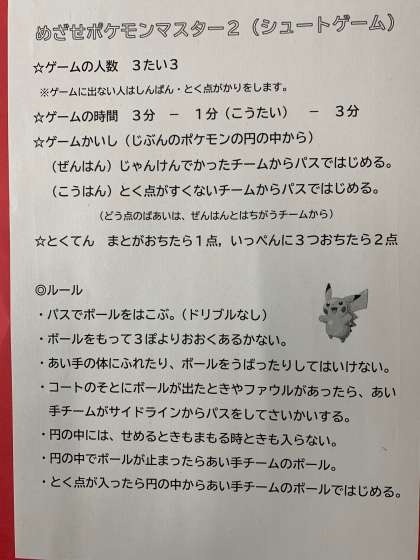 めざせポケモンマスター２（シュートゲーム）
☆ゲームの人数　３たい３
※ゲームに出ない人はしんぱん・とく点がかりをします。
☆ゲームの時間　３分　－　１分（こうたい）　－　３分
☆ゲームかいし（じぶんのポケモンの円の中から）
（ぜんはん）じゃんけんでかったチームからパスではじめる。
（こうはん）とく点がすくないチームからパスではじめる。
（どう点のばあいは、ぜんはんとはちがうチームから）
☆とくてん　まとがおちたら１点，いっぺんに３つおちたら２点
◎ルール
・パスでボールをはこぶ。（ドリブルなし）
・ボールをもって３ぽよりおおくあるかない。
・あい手の体にふれたり、ボールをうばったりしてはいけない。
・コートのそとにボールが出たときやファウルがあったら、あい
手チームがサイドラインからパスをしてさいかいする。
・円の中には、せめるときもまもる時ときも入らない。
・円の中でボールが止まったらあい手チームのボール。
・とく点が入ったら円の中からあい手チームのボールではじめる。